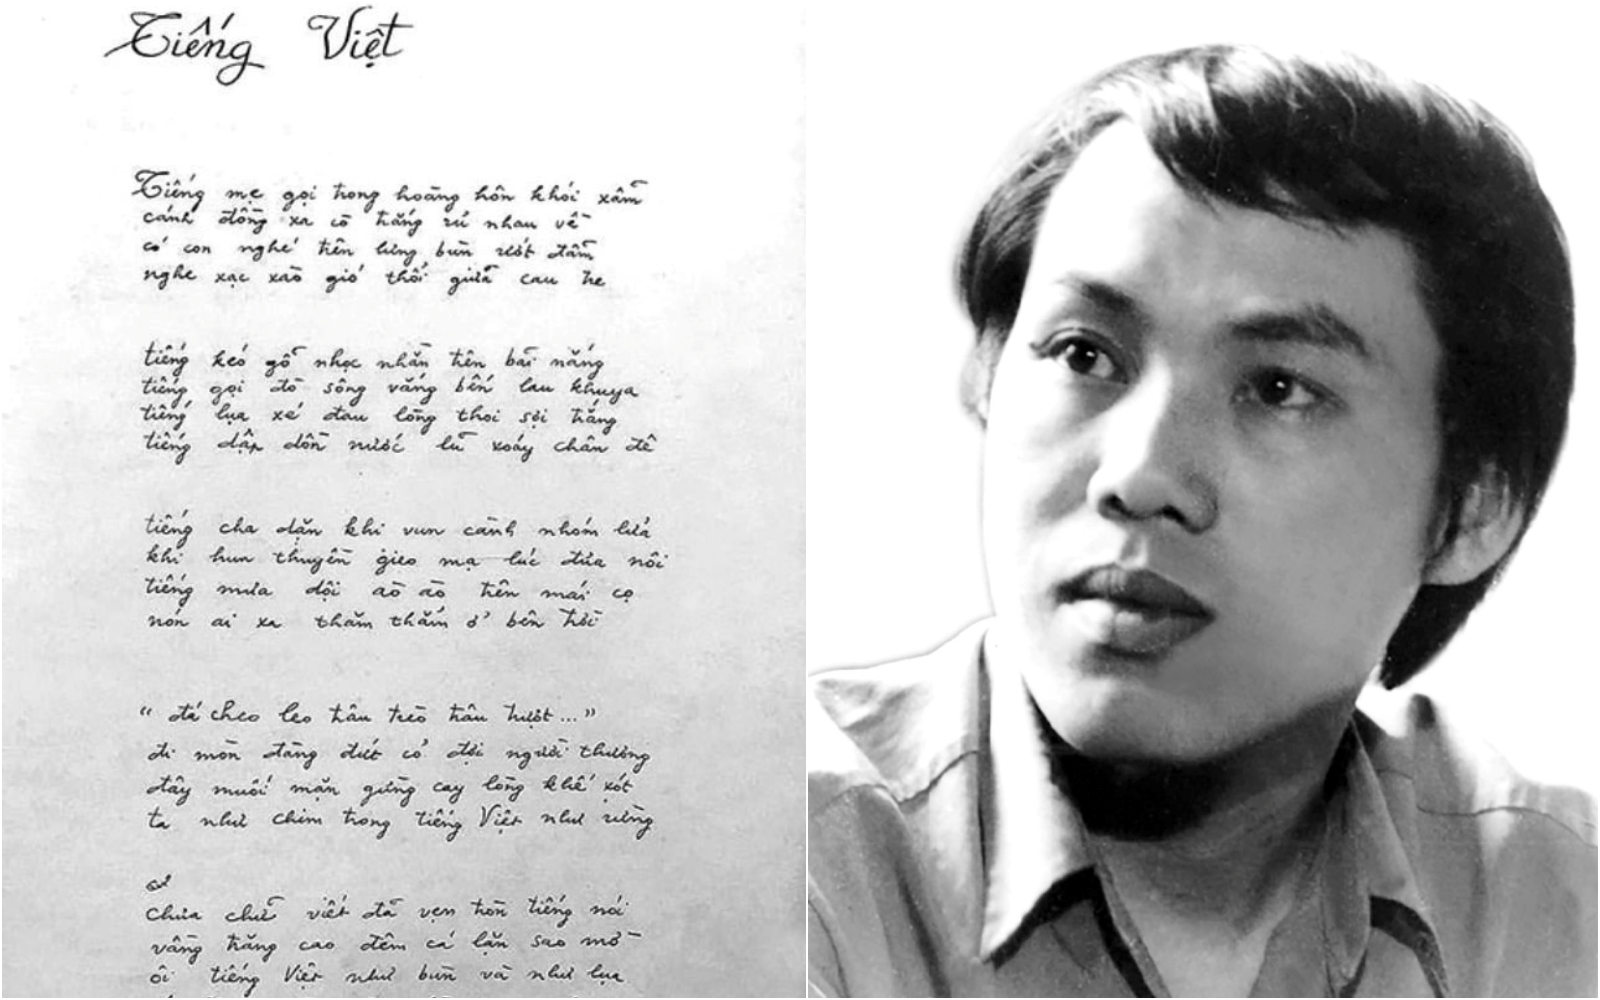 Tiếng Việt
Tiếng mẹ gọi trong hoàng hôn khói xẫm
cánh đồng xa cò trắng rủ nhau về
có con nghé trên lưng bùn ướt đẫm
nghe xạc xào gió thổi giữa cau tre
tiếng kéo gỗ nhọc nhằn trên bãi nắng
tiếng gọi đò sông vắng bến lau khuya
tiếng lụa xé đau lòng thoi sợi trắng
tiếng dập dồn nước lũ xoáy chân đê
tiếng cha dặn khi vun cành nhóm lửa
khi hun thuyền gieo mạ lúc đưa nôi
tiếng mưa dội ào ào trên mái cọ
nón ai xa thăm thẳm ở bên trời
“ đá cheo leo trâu trèo trâu trượt ... ”
đi mòn đàng dứt cỏ đợi người thương
đây muối mặn gừng cay lòng khế xót
ta như chim trong tiếng Việt như rừng
chưa chữ viết đã vẹn tròn tiếng nói
vầng trăng cao đêm cá lặn sao mờ
ôi tiếng Việt như bùn và như lụa